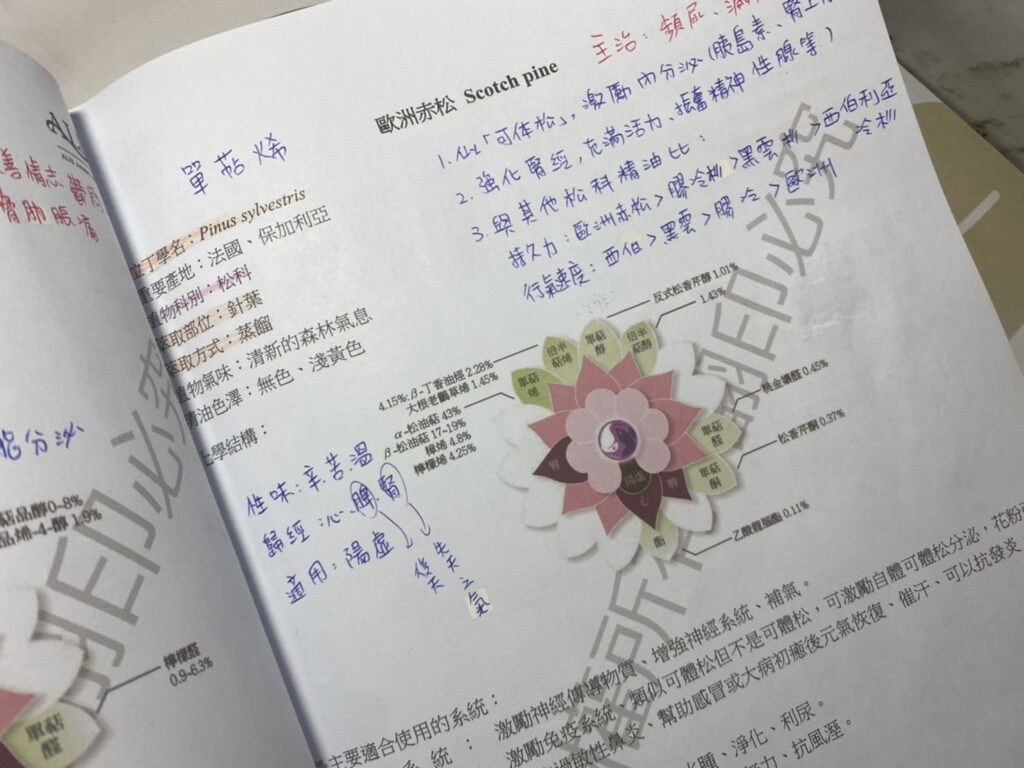 善情志
脹痛
分泌
萜品醇0~8%
檸檬醛
0.9~6.3%
單萜
醛
主治：頻尿、
歐洲赤松 Scotch pine
單萜烯
1. 仙「可体松」，激勵內分泌（胰島素、腎上
性腺等）
2. 強化腎經，充滿活力、振奮精神
3. 與其他松科精油比：
持久力：歐洲赤松>膠冷杉>黑雲杉>西伯利亞冷杉
行氣速度：西伯>黑雲>膠冷>歐洲
拉丁學名：Pinus sylvestris
重要產地：法國、保加利亞
植物科別：松科
萃取部位：針葉
萃取方式：蒸餾
植物氣味：清新的森林氣息
精油色澤：無色、淺黃色
化學結構：
性味：辛苦溫
歸經：心脾腎
適用：陽虛
後天
先天元氣
反式松香芹醇 1.01%
1.43%
4.15%: β-丁香油烴 2.28%
大根老鸛草烯 1.45%
α-松油萜 43%
β-松油萜 17~19%
檸烯 4.8%
檸檬烯 4.25%
桃金孃醛 0.45%
松香芹酮 0.37%
乙酸龍腦酯 0.11%
單萜烯
倍半萜烯
單萜醇
倍半萜醇
單萜醛
單萜酮
酯
腎
脾
心
陽虛
主要適合使用的系統：
系統：激勵神經傳導物質、增強神經系統、補氣。
激勵免疫系統、類似可體松但不是可體松，可激勵自體可體松分泌，花粉
過敏性鼻炎、幫助感冒或大病初癒後元氣恢復、催汗、可以抗發炎
水腫、淨化、利尿。
抗風溼。
翻印必究